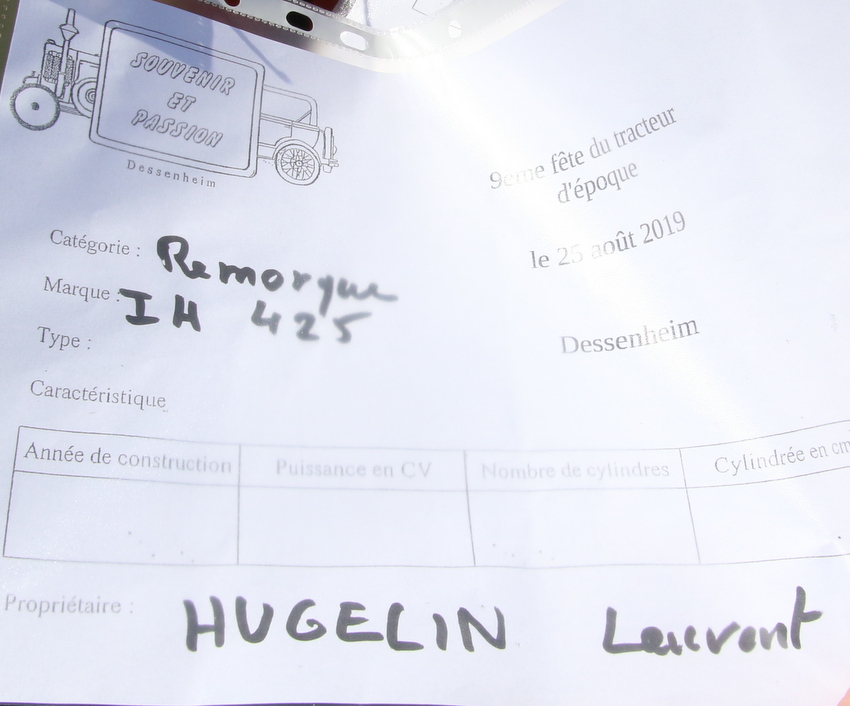 SOUVENIR
ET
PASSION
Dessenheim
9eme fête du tracteur
d'époque
le 25 août 2019
Dessenheim
Catégorie : Remorque
Marque : IH 425
Type :
Caractéristique
Année de construction
Puissance en CV
Nombre de cylindres
Cylindrée en cm
Propriétaire : HUGELIN Laurent